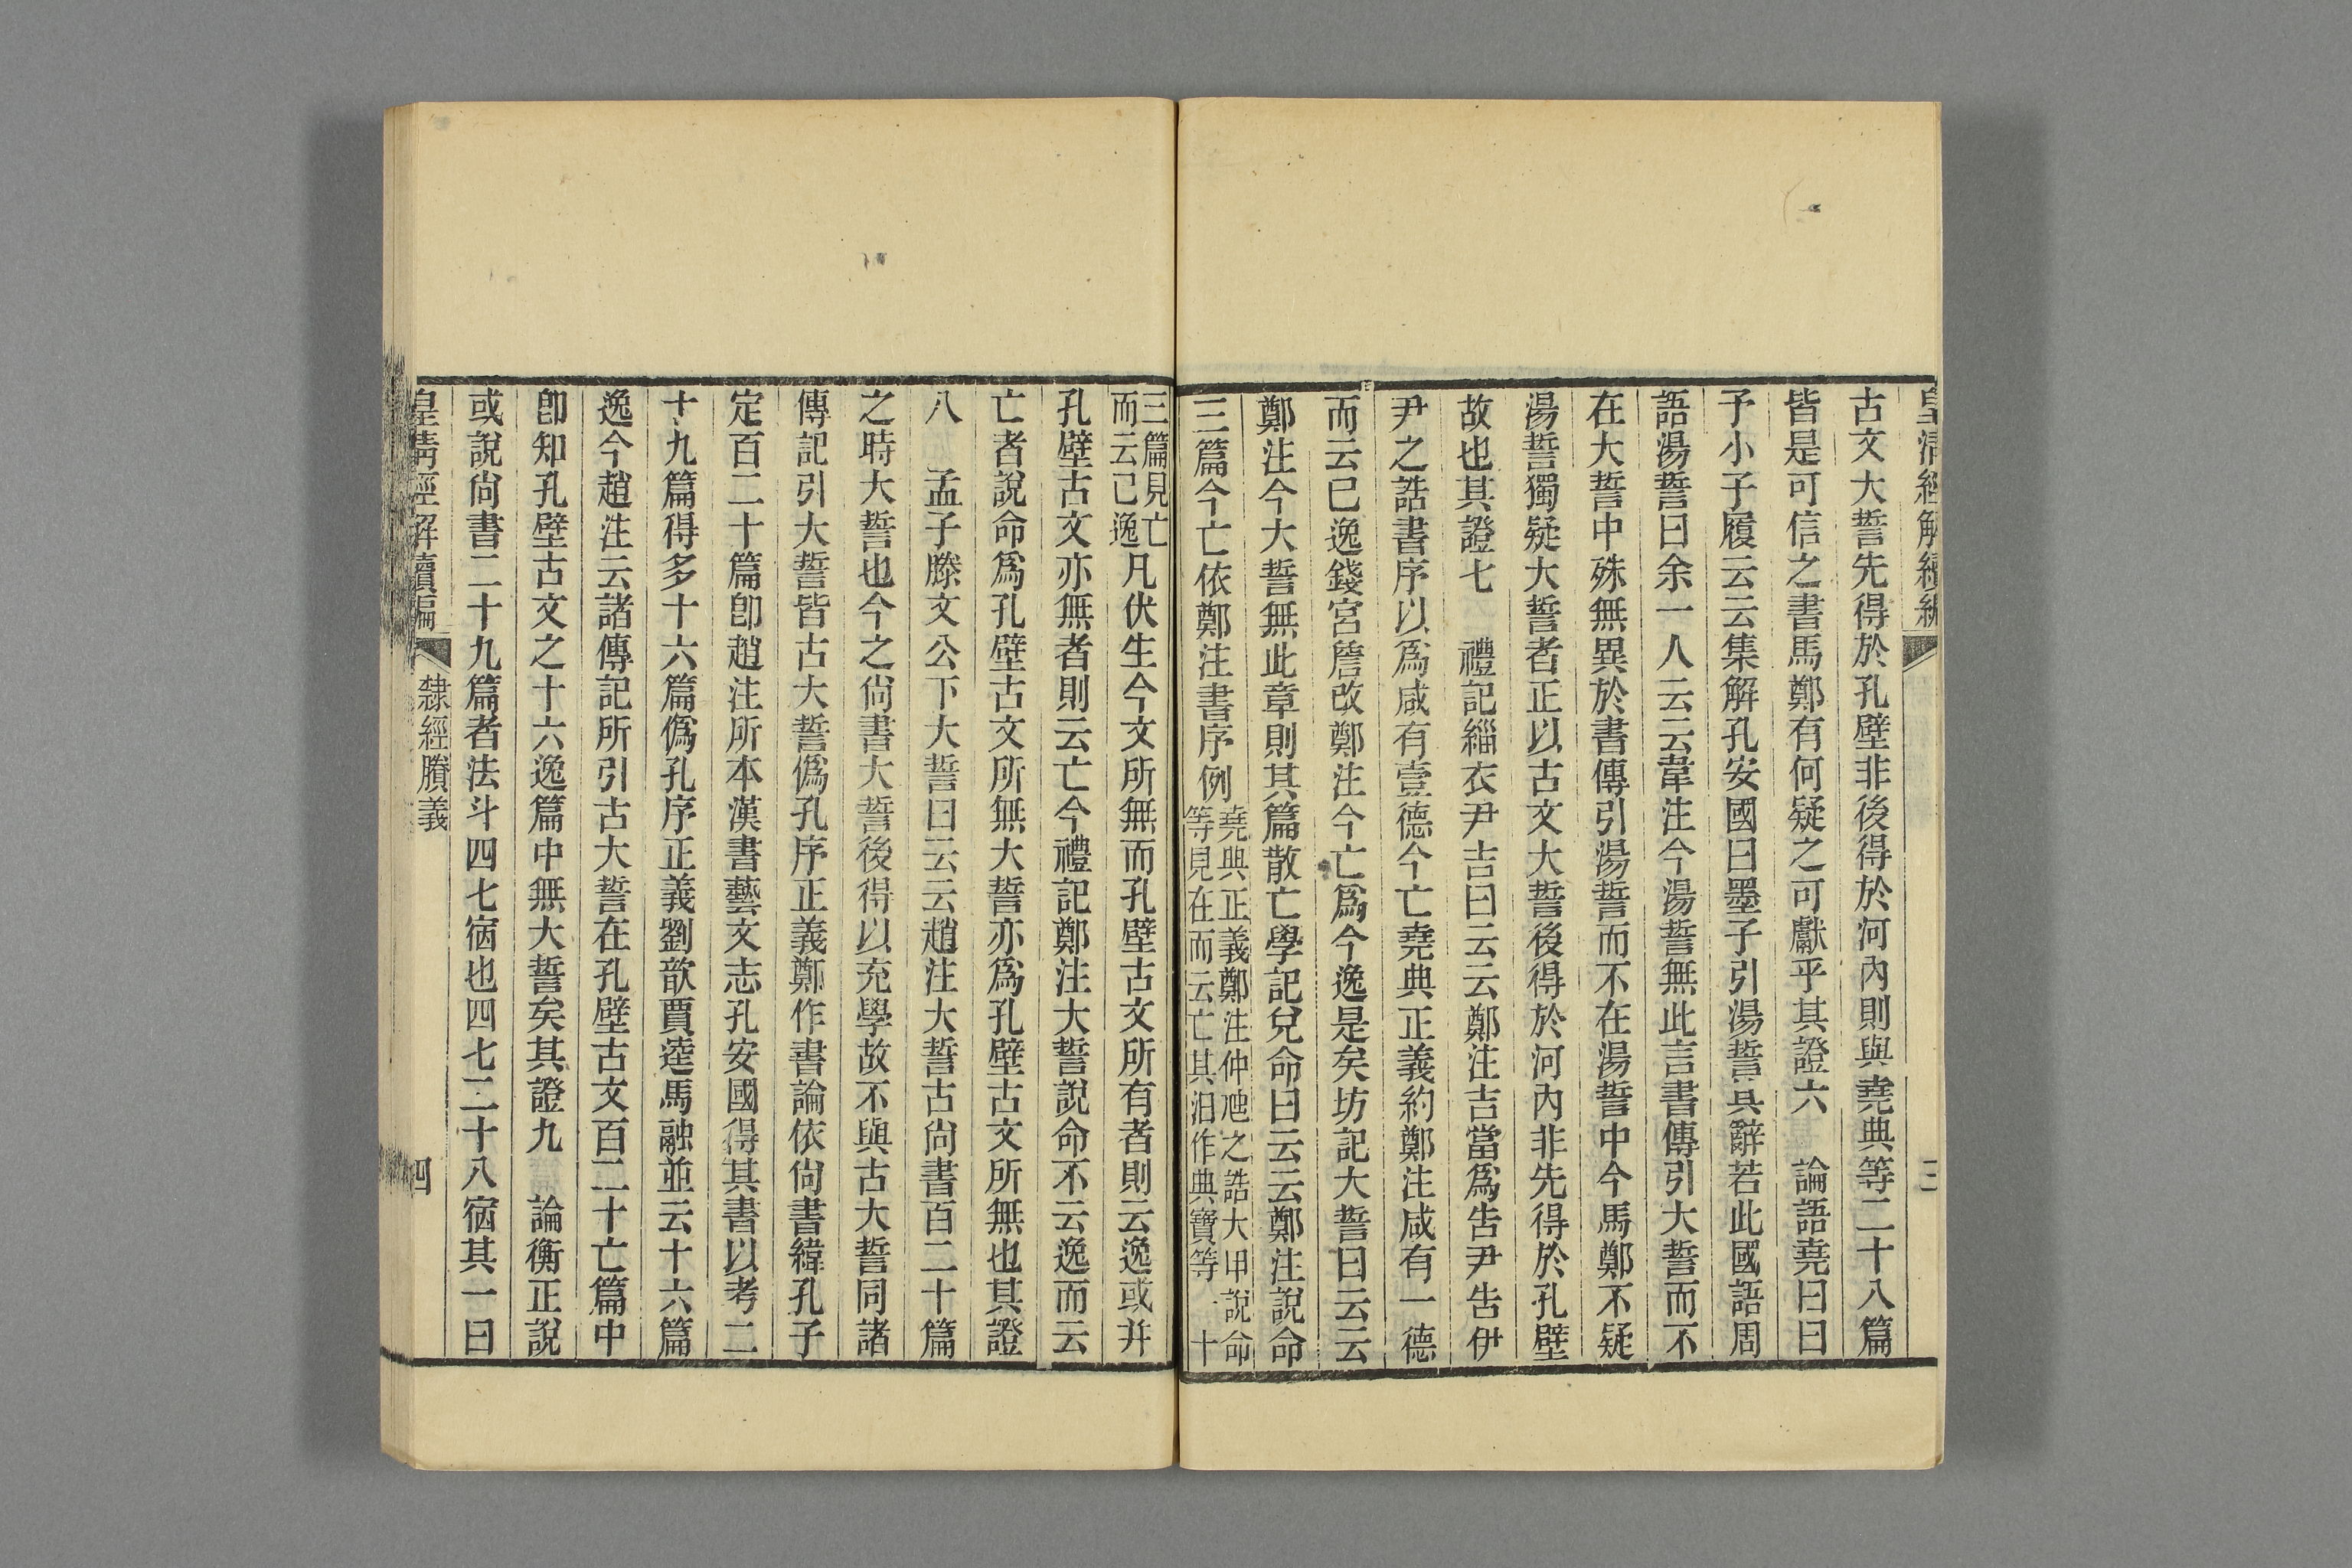 皇清經解續編
三
古文大誓先得於孔壁非後得於河內則與堯典等二十八篇
皆是可信之書馬鄭有何疑之可獻乎其證六　論語堯曰曰
予小子履云云集解孔安國曰墨子引湯誓其辭若此國語周
語湯誓曰余一人云云韋注今湯誓無此言書傳引大誓而不
在大誓中殊無異於書傳引湯誓而不在湯誓中今馬鄭不疑
湯誓獨疑大誓者正以古文大誓後得於河內非先得於孔壁
故也其證七　禮記緇衣尹吉曰云云鄭注吉當爲告尹告伊
尹之誥書序以爲咸有壹德今亡堯典正義約鄭注咸有一德
而云已逸錢宮詹改鄭注今亡爲今逸是矣坊記大誓曰云云
鄭注今大誓無此章則其篇散亡學記兌命曰云云鄭注說命
三篇今亡依鄭注書序例
堯典正義鄭注仲虺之誥大甲說命
等見在而云亡其汩作典寶等一十
三篇見亡
而云已逸
凡伏生今文所無而孔壁古文所有者則云逸或并
孔壁古文亦無者則云亡今禮記鄭注大誓說命不云逸而云
亡者說命爲孔壁古文所無大誓亦爲孔壁古文所無也其證
八　孟子滕文公下大誓曰云云趙注大誓古尙書百二十篇
之時大誓也今之尙書大誓後得以充學故不與古大誓同諸
傳記引大誓皆古大誓僞孔序正義鄭作書論依尙書緯孔子
定百二十篇卽趙注所本漢書藝文志孔安國得其書以考二
十九篇得多十六篇僞孔序正義劉歆賈逵馬融並云十六篇
逸今趙注云諸傳記所引古大誓在孔壁古文百二十亡篇中
卽知孔壁古文之十六逸篇中無大誓矣其證九　論衡正說
或說尙書二十九篇者法斗四七宿也四七二十八宿其一曰
皇清經解續編
隸經賸義
四